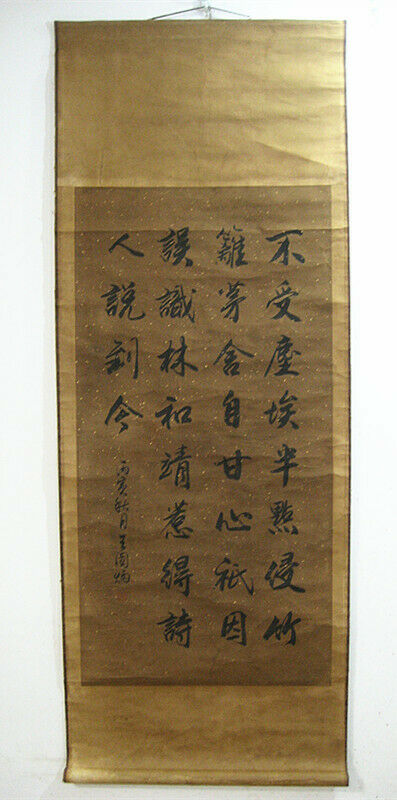 不受塵埃半點侵竹
籬茅舍自甘心祇因
誤識林和靖惹得詩
人說到今
丙寅秋月